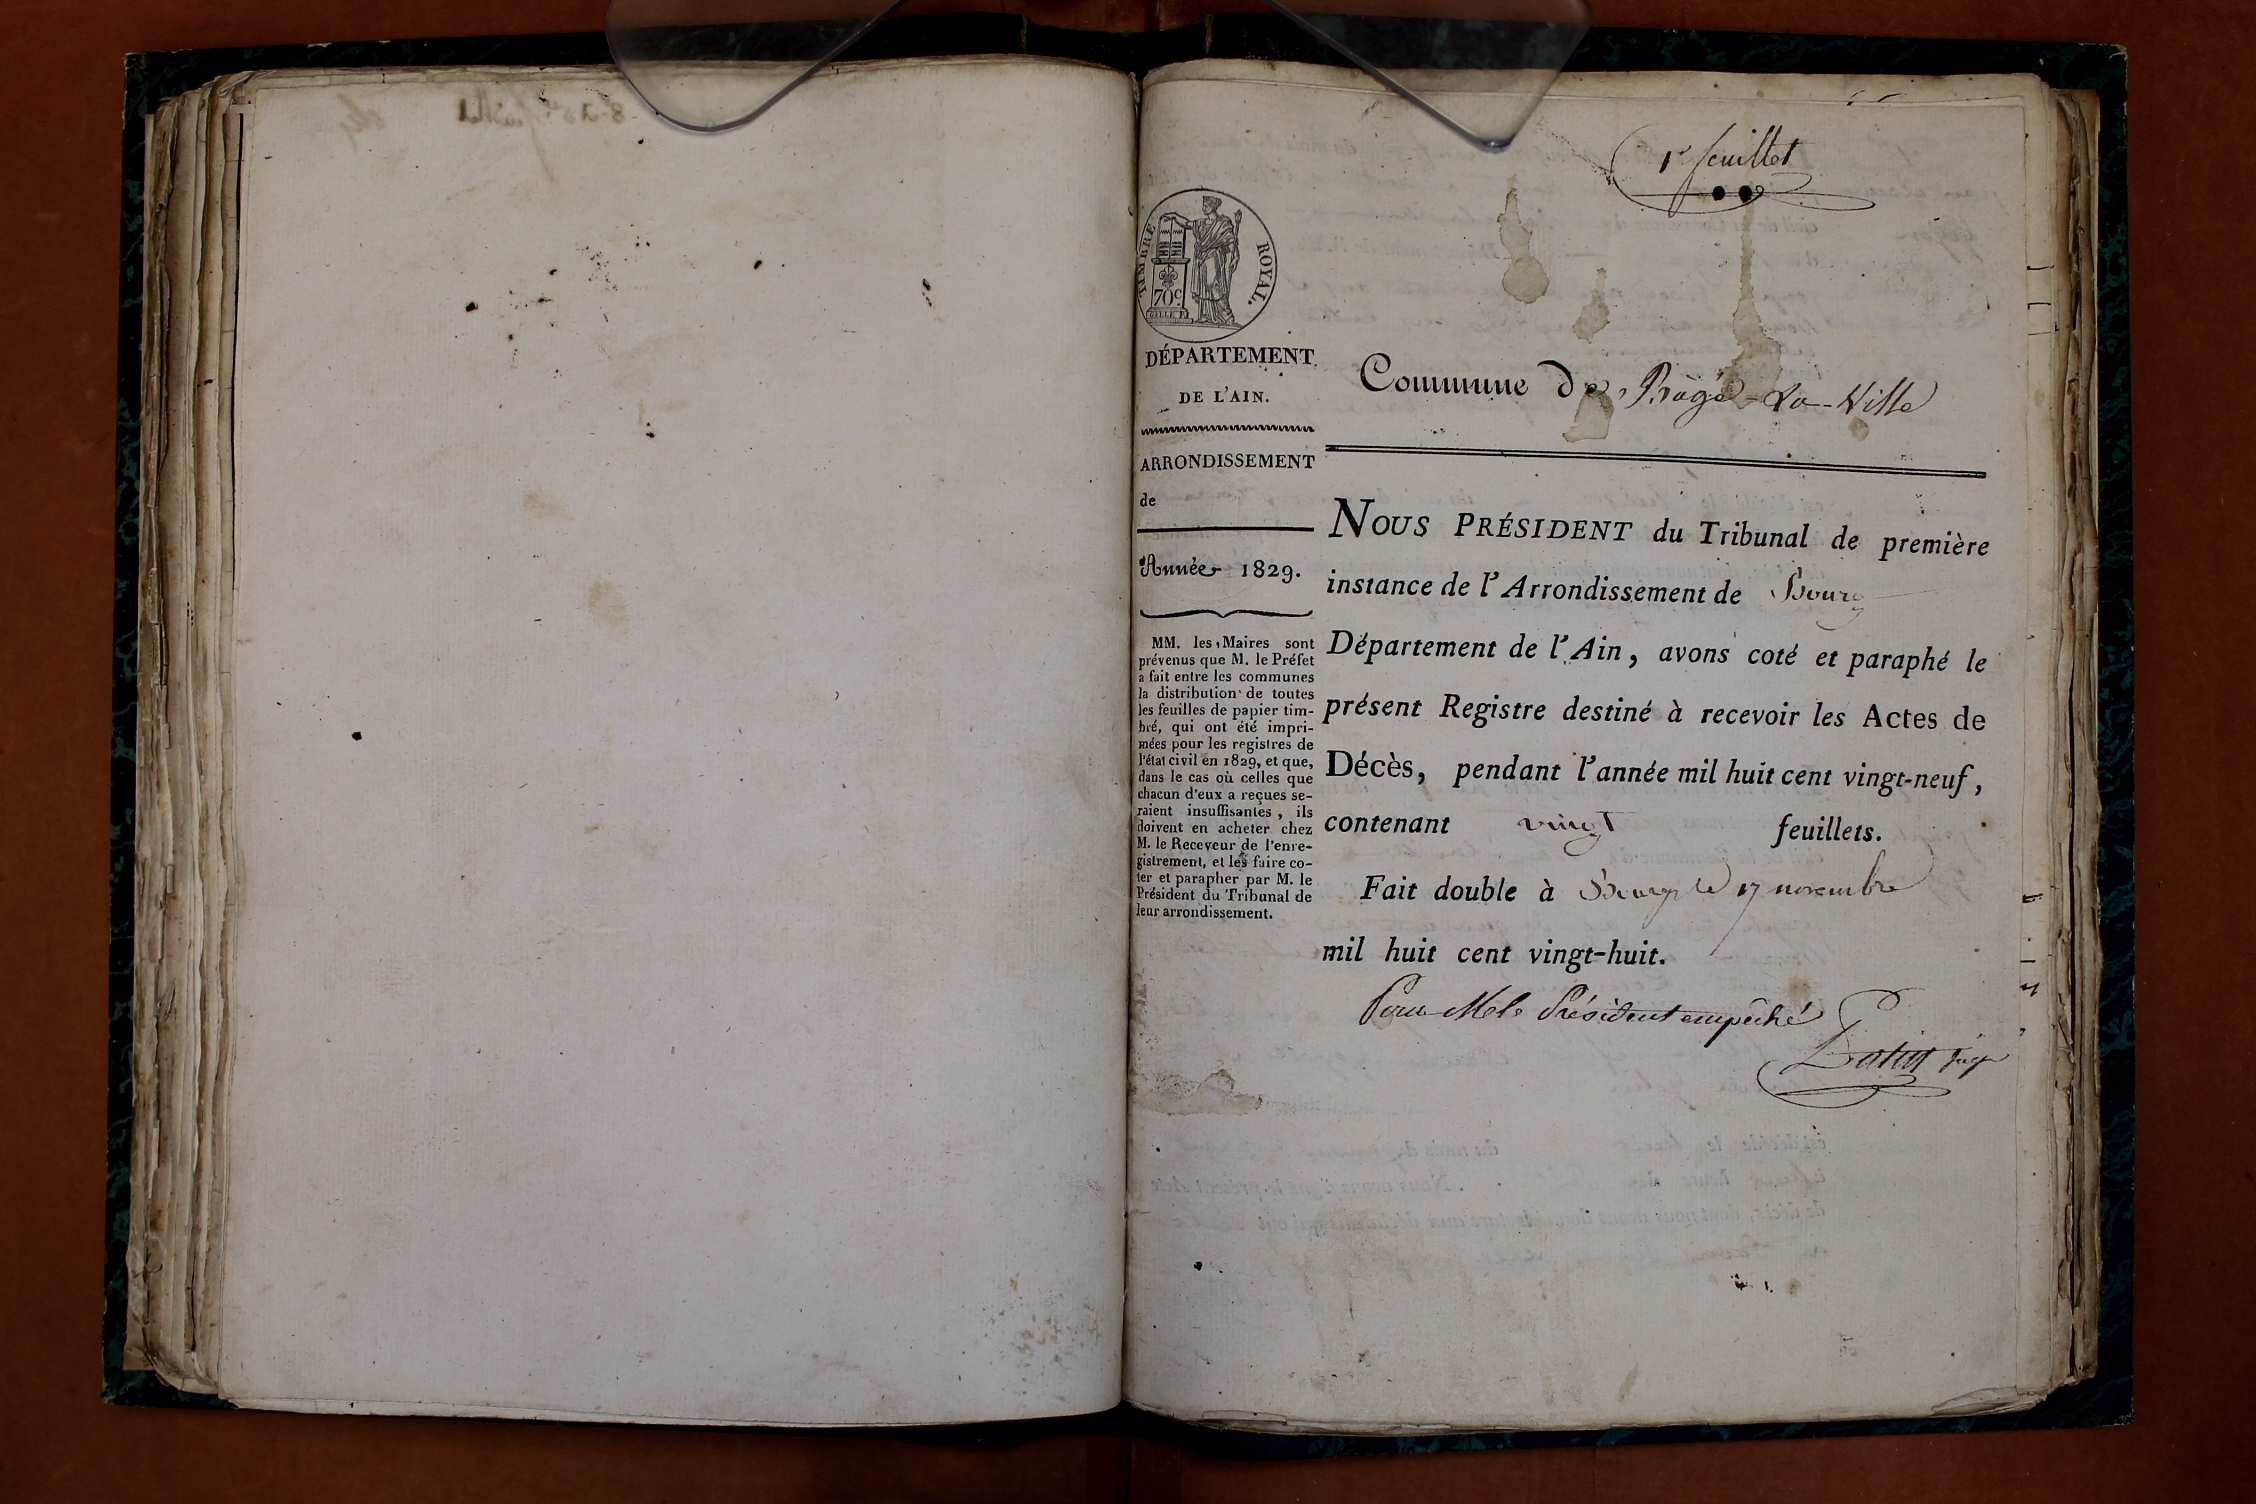 1r feuillet
TIMBRE ROYAL.
70c
DÉPARTEMENT
DE L'AIN.
ARRONDISSEMENT
de
Année 1829.
MM. les Maires sont
prévenus que M. le Préfet
a fait entre les communes
la distribution de toutes
les feuilles de papier tim-
bré, qui ont été impri-
mées pour les registres de
l'état civil en 1829, et que,
dans le cas où celles que
chacun d'eux a reçues se-
raient insuffisantes, ils
doivent en acheter chez
M. le Receveur de l'enre-
gistrement, et les faire co-
ter et parapher par M. le
Président du Tribunal de
leur arrondissement.
Commune de Bâgé-La-Ville
NOUS PRÉSIDENT du Tribunal de première
instance de l'Arrondissement de Bourg
Département de l'Ain, avons coté et paraphé le
présent Registre destiné à recevoir les Actes de
Décès, pendant l'année mil huit cent vingt-neuf,
contenant vingt feuillets.
Fait double à Bourg le 17 novembre
mil huit cent vingt-huit.
Pour M le Président empêché
juge